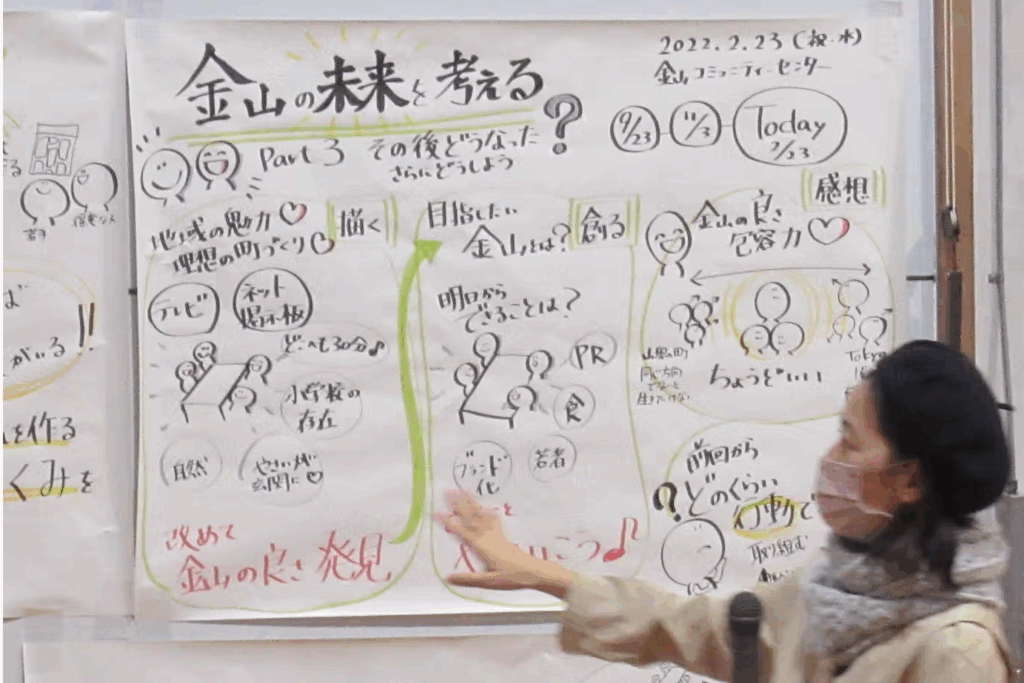 金山の未来を考える?
2022.2.23(祝・水)
金山コミュニティーセンター
9/23
11/3
Today
2/23
Part 3 その後どうなった
さらにどうしよう
地域の魅力♡
理想の町づくり
描く
テレビ
ネット
掲示板
どこへも30分♪
小学校の
存在
自然
やさいが
玄関に♡
改めて
金山の良さ発見
目指したい
金山とは?
創る
明日から
できることは?
PR
食
ブランド
化
若者
を
いこう♪
感想
金山の良さ
包容力♡
同じ方向
でないと
生きていけない
Tokyo
ちょうどいい
前回から
?どのくらい
行動で
取り組む
がいる!!
を作る
くみを